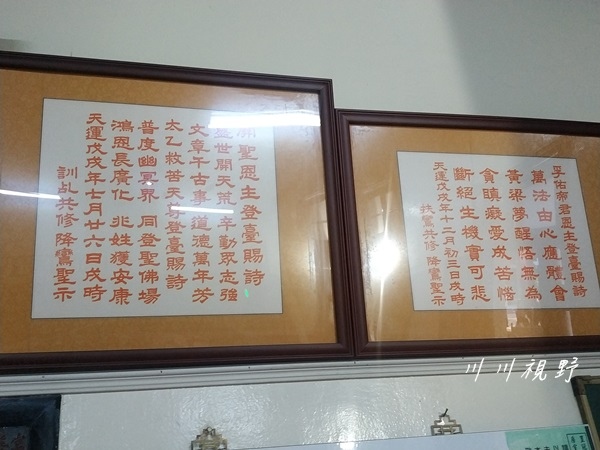 開聖恩主登臺賜詩
盛世開天荒 辛勤眾志強
文章千古事 道德萬年芳
太乙救苦天尊登臺賜詩
普度幽冥界 同登聖佛場
鴻恩長廣化 兆姓獲安康
天運戊戌年七月廿六日戌時
訓乩共修 降鸞聖示
孚佑帝君恩主登臺賜詩
萬法由心應體會
黃粱夢醒悟無為
貪瞋癡愛成苦惱
斷絕生機實可悲
天運戊戌年十二月初三日戌時
扶鸞共修 降鸞聖示
川川視野